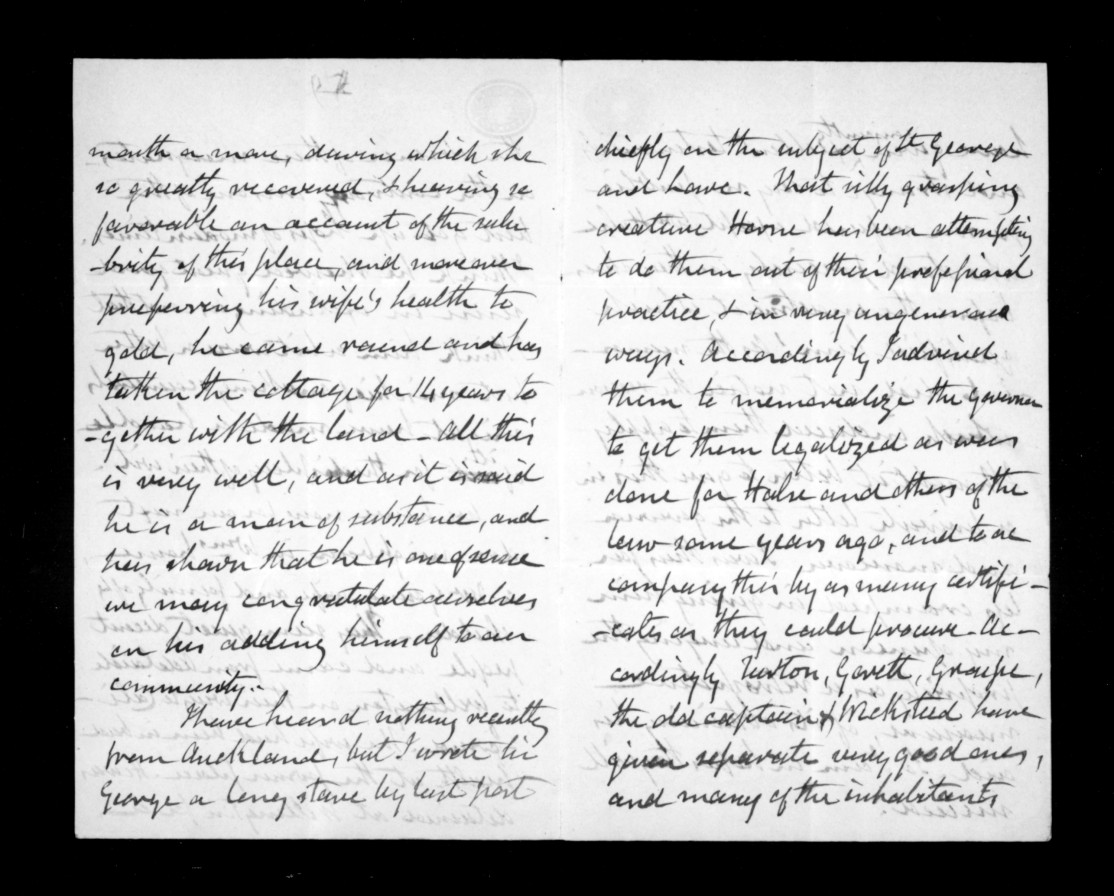 month or more, during which she
so greatly recovered, & hearing so
favorable an account of the salu
-brity of this place, and moreover
preferring his wife's health to
gold, he came round and has
taken the cottage for 14 years to
-gether with the land - All this
is very well, and as it is said
he is a man of substance, and
has shown that he is one of sense
we may congratulate ourselves
on his adding himself to our
community.
I have heard nothing recently
from Auckland, but I wrote Sir
George a long stave by last post
chiefly on the subject of St George
and Lowe. That silly grasping
creature Horne has been attempting
to do them out of their professional
practice, & in very ungenerous
ways. Accordingly I advised
them to memorialize the Governor
to get them legalized as was
done for Halse and others of the
law some years ago, and to ac
company this by as many certifi-
-cates as they could procure - Ac-
cordingly Turton, Govett, Groube,
the old captain & Wicksteed have
given separate very good ones,
and many of the inhabitants